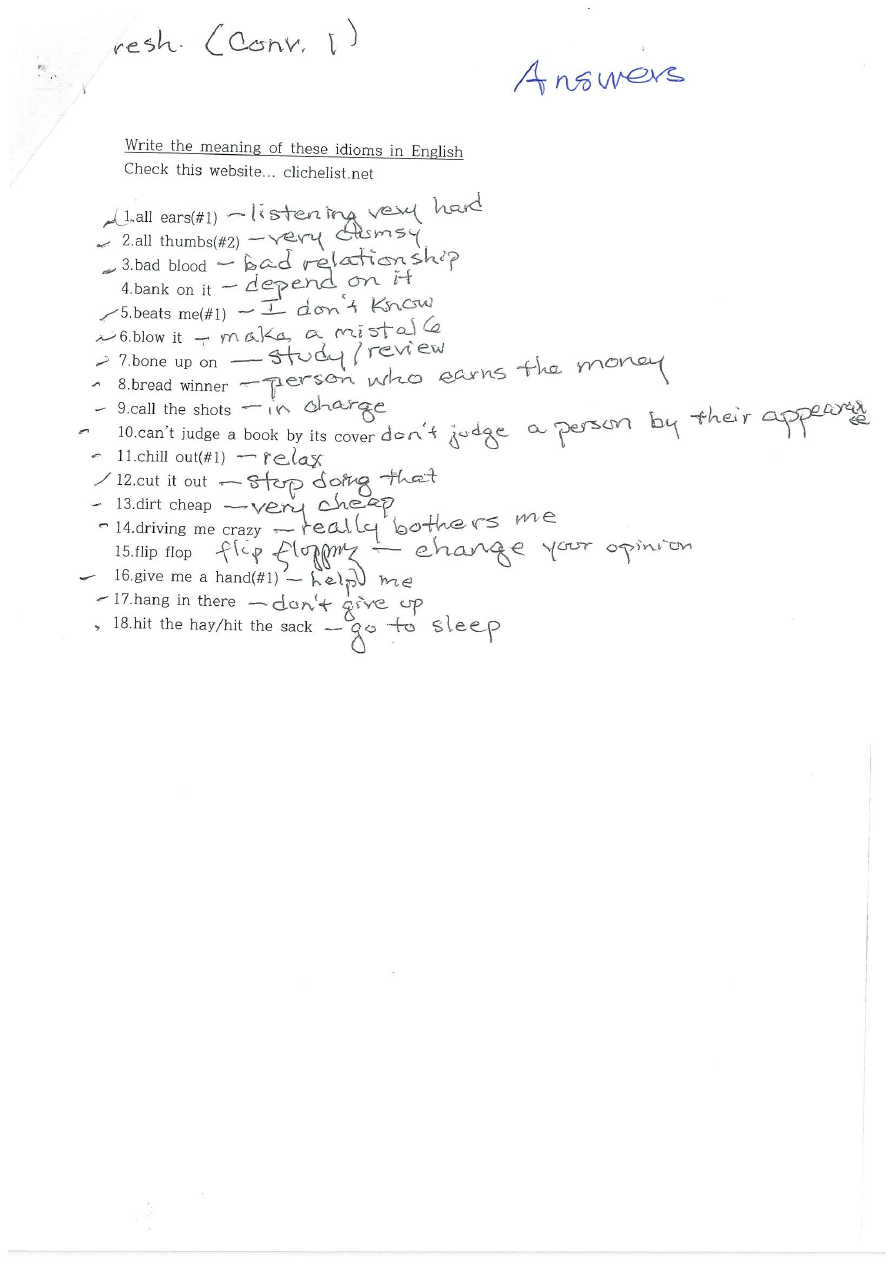 resh. (Conv. 1)
Answers
Write the meaning of these idioms in English
Check this website... clichelist.net
1.all ears(#1) – listening very hard
2.all thumbs(#2) – very clumsy
3.bad blood – bad relationship
4.bank on it – depend on it
5.beats me(#1) – I don't know
6.blow it – make a mistake
7.bone up on – study/review
8.bread winner – person who earns the money
9.call the shots – in charge
10.can't judge a book by its cover don't judge a person by their appearance
11.chill out(#1) – relax
12.cut it out – stop doing that
13.dirt cheap – very cheap
14.driving me crazy – really bothers me
15.flip flop flip flopping – change your opinion
16.give me a hand(#1) – help me
17.hang in there – don't give up
18.hit the hay/hit the sack – go to sleep